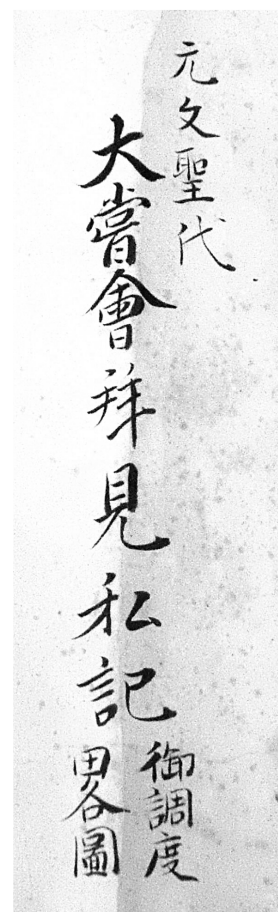 元文聖代
大嘗會拜見私記
御調度
畧圖